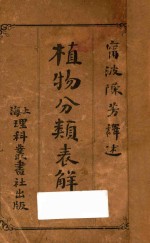 甯波陳芳釋述
植物分類表解
上海
理科叢書社出版